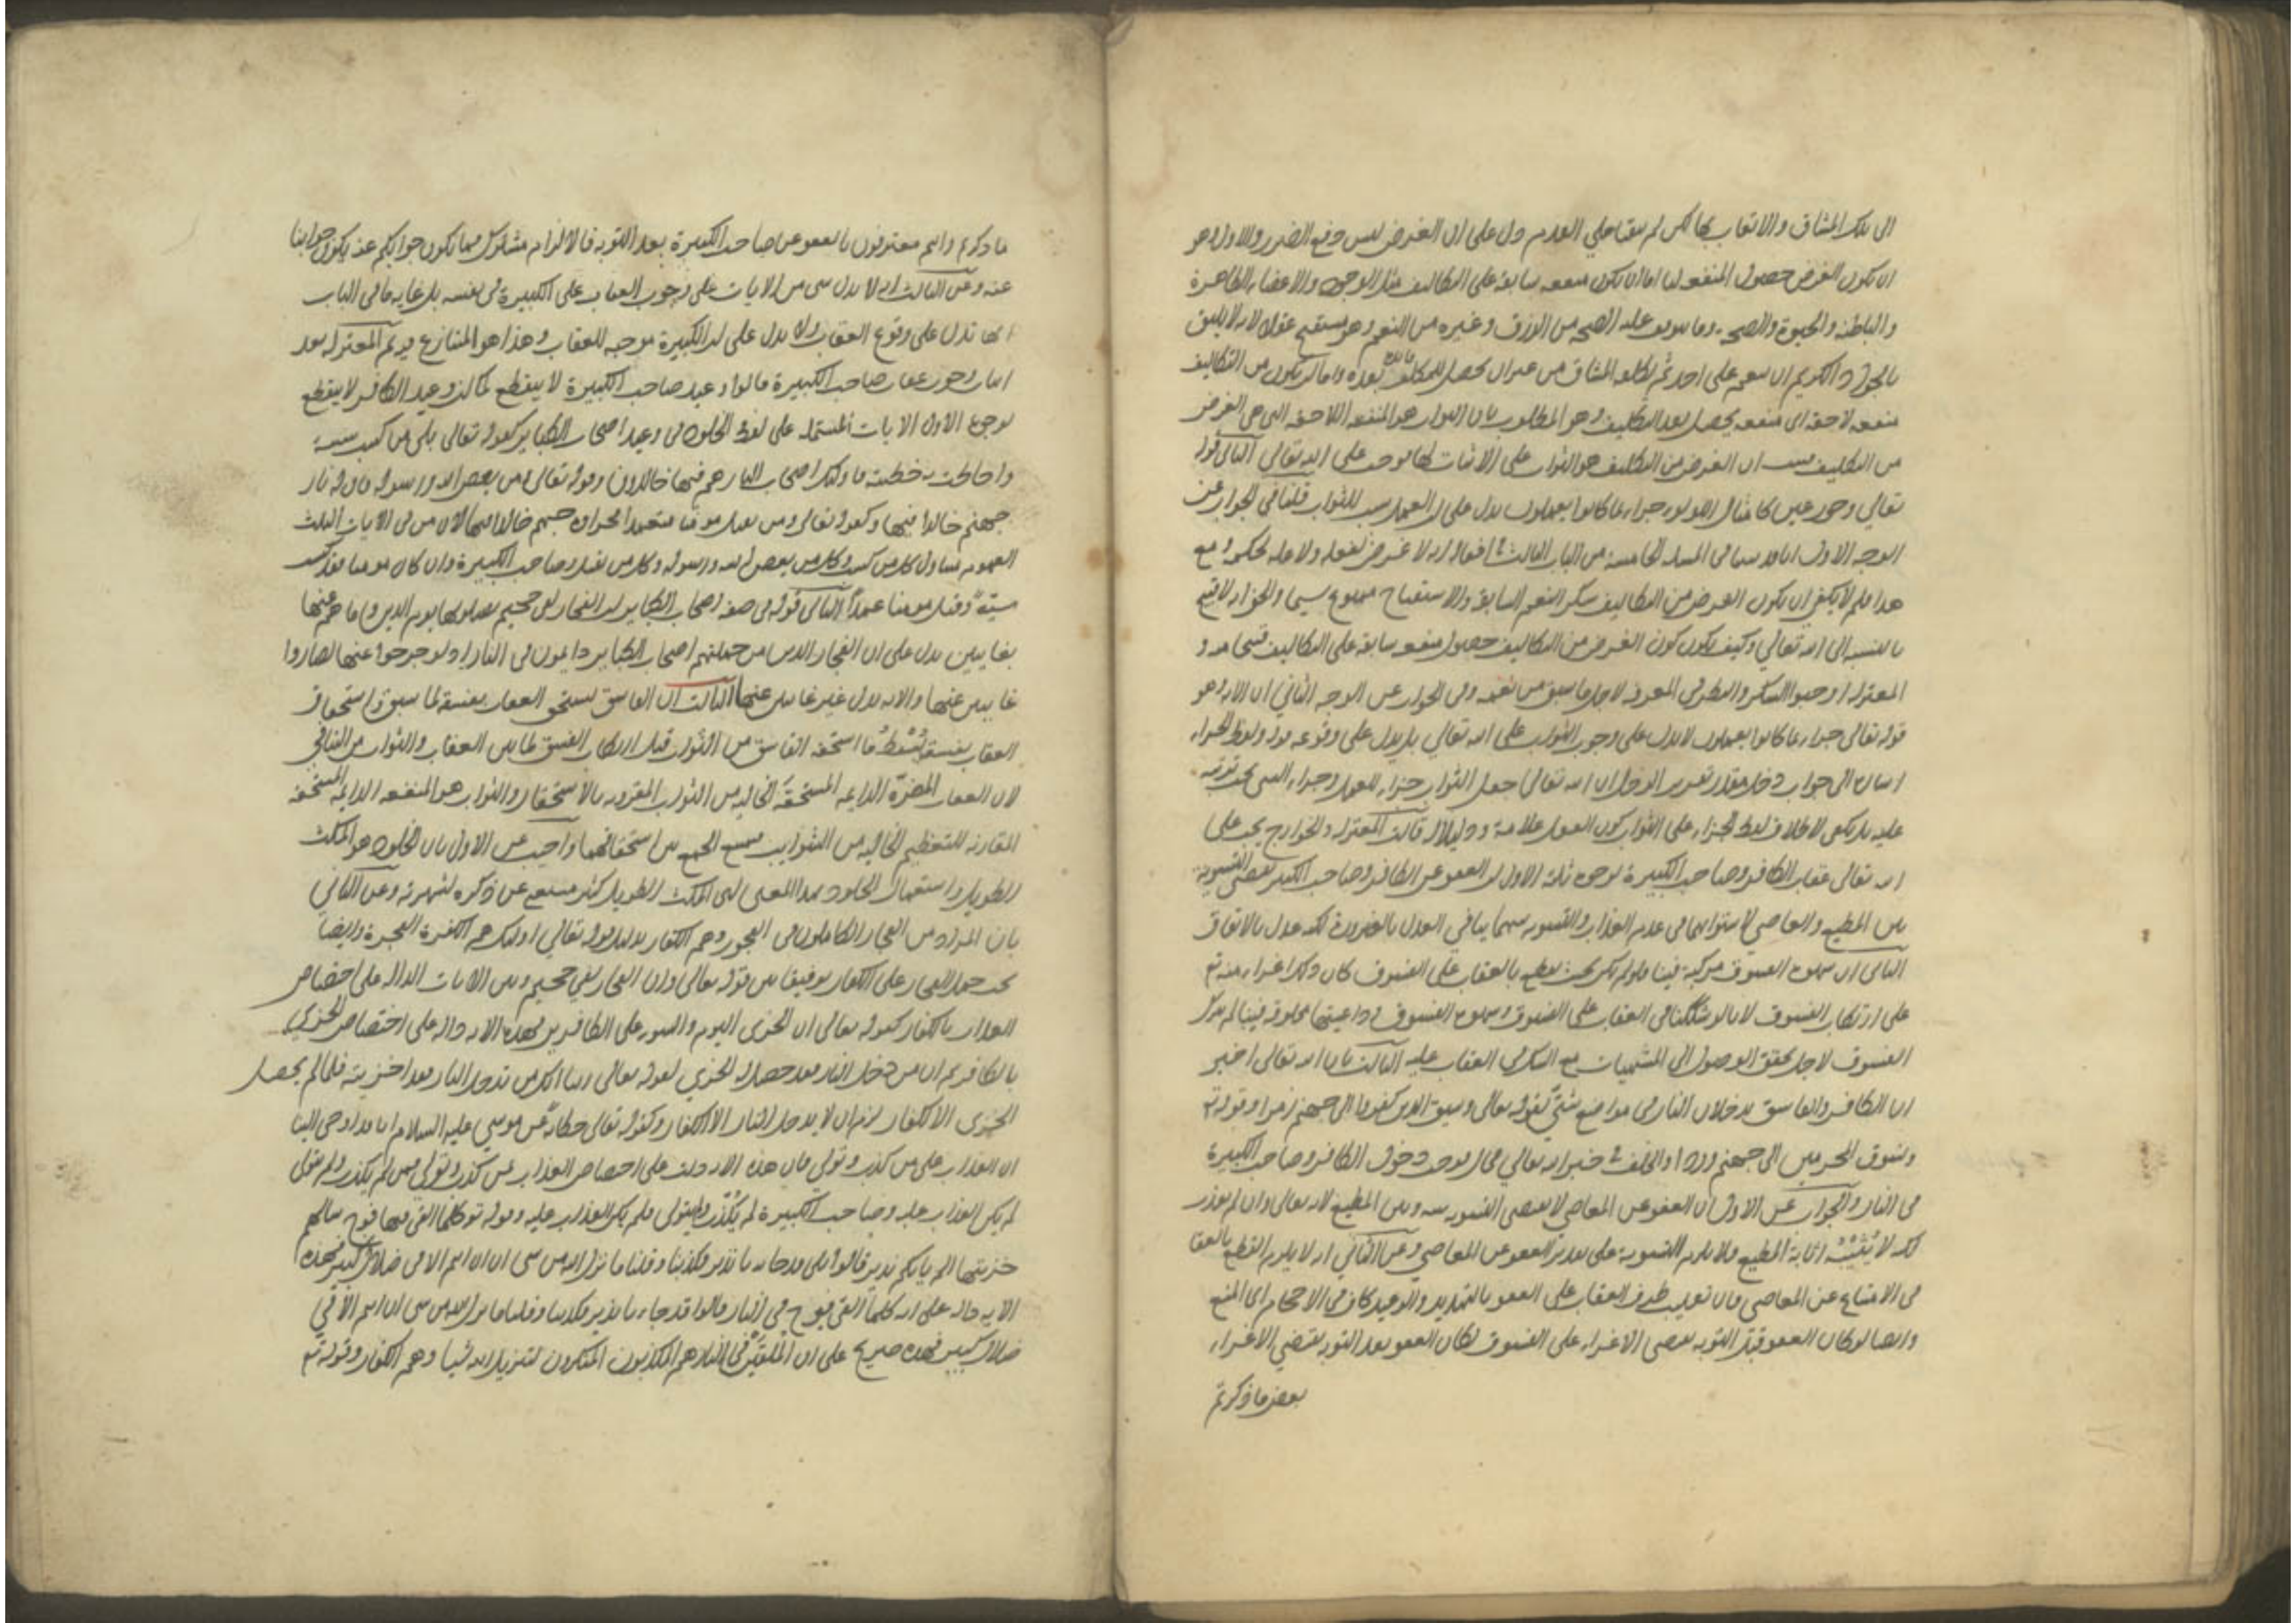 الى تلك المشاق والاتعاب بها لكن لم يبقنا على العدم دل على ان الغرض ليس دفع الضرر والاول وهو
ان يكون الغرض حصول المنفعه لنا اما ان يكون منفعه سابقة على التكاليف مثل الوجود والاعضاء الظاهرة
والباطنه والحيوة والصحه وما يتوقف عليه الصحه من الرزق وغيره من النعم وهو مستقبح عقلا لانه لا يليق
بالجواد الكريم ان ينعم على احد ثم يكلفه المشاق من غير ان يحصل للمكلف فائدة بعده واما ان يكون من التكاليف
منفعه لاحقه اى منفعه يحصل بعد التكليف وهو المطلوب فان الثواب هو المنفعه اللاحقه التى هى الغرض
من التكليف ان الغرض من التكليف هو الثواب على الاثبات بها يوجب على الله تعالى الثانى قوله
تعالى وحور عين كامثال اللؤلؤ جزاء بما كانوا يعملون يدل على ان العمل سبب للثواب قلنا فى الجواب عن
الوجه الاول انا قد بينا فى المسله الخامسه من الباب الثالث فى افعاله انه لا غرض لفعله ولا عله لحكمه ومع
هذا فلم لا يكفى ان يكون الغرض من التكاليف شكر النعم السابقه والاستقباح ممنوع سيما والجواد لا قبح
بالنسبه الى الله تعالى وكيف يكون كون الغرض من التكاليف حصول منفعه سابقة على التكاليف قبيحا و
المعتزلة اوجبوا الشكر والنظر فى المعرفة لاجل ما سبق من نعمه وفى الجواب عن الوجه الثانى ان الآية وهو
قوله تعالى جزاء بما كانوا يعملون لا تدل على وجوب الثواب على الله تعالى بل يدل على وقوعه قوله ولفظ الجزاء
اشاره الى جواب دخل مقدر تقرير الدخل ان الله تعالى جعل الثواب جزاء للعمل وجزاء الشى يجب ترتبه
عليه بل يكفى لاطلاق لفظ الجزاء على الثواب كون العمل علامة ودليلا قال قالت المعتزله والخوارج يجب على
الله تعالى عقاب الكافر وصاحب الكبيرة لوجوه ثلثة الاول ان العفو عن الكافر وصاحب الكبيرة يقتضى التسوية
بين المطيع والعاصى لاستوائهما فى عدم العذاب والتسويه بينهما ينافى العدل بالضرورة لكنه عدل بالاتفاق
الثانى ان شهوة الفسوق مركبة فينا فلو لم يكن بحيث يقطع بالعقاب على الفسوق كان ذلك اغراء منه تع
على ارتكاب الفسوق لانا لو شككنا فى العقاب على الفسوق وشهوة الفسوق وداعيتها مخلوقة فينا لم نترك
الفسوق لاجل تحقق الوصول الى المشتهيات مع الشك فى العقاب عليه الثالث بان الله تعالى اخبر
ان الكافر والفاسق يدخلان النار فى مواضع شتى كقوله تعالى وسيق الذين كفروا الى جهنم زمرا وقوله تع
ونسوق المجرمين الى جهنم وردا والخلف فى خبر الله تعالى محال فوجب دخول الكافر وصاحب الكبيرة
فى النار والجواب عن الاول ان العفو عن العاصى لا يقتضى التسويه بينه وبين المطيع لانه تعالى وان لم يعذر
لكنه لا يثيبه اثابة المطيع ولا يلزم التسوية على تقدير العفو عن العاصى وعن الثانى انه لا يلزم القطع بالعقا
فى الامتناع عن المعاصى فان تغليب طرف العقاب على العفو بالتهديد والوعيد كاف فى الاحجام اى المنع
وايضا لو كان العفو قبل التوبه يقتضى الاغراء على الفسوق لكان العفو بعد التوبه يقتضى الاغراء
بعض ما ذكرتم
ما ذكرتم وانتم معترفون بالعفو عن صاحب الكبيرة بعد التوبه فالالزام مشترك فما يكون جوابكم عنه يكون جوابنا
عنه وعن الثالث انه لا يدل شى من الايات على وجوب العقاب على الكبيرة فى نفسه بل غايه ما فى الباب
انها تدل على وقوع العقاب ولا يدل على ان الكبيرة موجبه للعقاب وهذا هو المتنازع فيه ثم المعتزله بعد
اثبات وجوب عقاب صاحب الكبيرة قالوا وعيد صاحب الكبيرة لا ينقطع كما ان وعيد الكافر لا ينقطع
لوجوه الاول الايات المشتمله على لفظ الخلود فى وعيد اصحاب الكبائر كقوله تعالى بلى من كسب سيئة
واحاطت به خطيئته فاولئك اصحاب النار هم فيها خالدون وقوله تعالى ومن يعص الله ورسوله فان له نار
جهنم خالدا فيها وكقوله تعالى ومن يقتل مؤمنا متعمدا فجزاؤه جهنم خالدا فيها لان من فى الايات الثلث
للعموم يتناول كل من كسب وكل من يعصى الله ورسوله وكل من يقتل وصاحب الكبيرة وان كان مومنا فقد كسب
سيئة وقتل مومنا عمدا الثانى قوله فى صفه اصحاب الكبائر ان الفجار لفى جحيم يصلونها يوم الدين وما هم عنها
بغايبين يدل على ان الفجار الذين من جملتهم اصحاب الكبائر دايمون فى النار اذ لو خرجوا عنها لصاروا
غايبين عنها والايه تدل غير غايبين عنها الثالث ان الفاسق يستحق العقاب بفسقه لما سبق واستحقاق
العقاب بفسقه يسقط ما استحقه الفاسق من الثواب قبل ارتكاب الفسق لما بين العقاب والثواب من التنافى
لان العقاب المضرة الدايمه المستحقه الخاليه من الثواب المقرون بالاستحقار والثواب هو المنفعه الدايمه المستحقه
المقارنه للتعظيم الخاليه من الشوائب يمتنع الجمع بين استحقاقهما واجيب عن الاول بان الخلود هو المكث
الطويل واستعمال الخلود بهذا المعنى اى المكث الطويل كثير مستغن عن ذكره لشهرته وعن الثانى
بان المراد من الفجار الكاملون فى الفجور وهم الكفار بدليل قوله تعالى اولئك هم الكفرة الفجرة وايضا
يجب حمل الفجار على الكفار توفيقا بين قوله تعالى وان الفجار لفى جحيم وبين الايات الداله على اختصاص
العذاب بالكفار كقوله تعالى ان الخزى اليوم والسوء على الكافرين فهذه الايه داله على اختصاص الخزى
بالكافر ثم ان من دخل النار فقد حصل له الخزى لقوله تعالى ربنا انك من تدخل النار فقد اخزيته فلما لم يحصل
الخزى الا للكفار لزم ان لا يدخل النار الا الكفار وكقوله تعالى حكاية عن موسى عليه السلام انا قد اوحى الينا
ان العذاب على من كذب وتولى فان هذه الايه دلت على اختصاص العذاب بمن كذب وتولى ومن لم يكذب ولم يتول
لم يكن العذاب عليه وصاحب الكبيرة لم يكذب ولم يتول فلم يكن العذاب عليه وقوله تع كلما القى فيها فوج سالهم
خزنتها الم ياتكم نذير قالوا بلى قد جاءنا نذير فكذبنا وقلنا ما نزل الله من شى ان انتم الا فى ضلال كبير فهذه
الايه داله على انه كلما القى فوج فى النار قالوا قد جاءنا نذير فكذبنا وقلنا ما نزل الله من شى ان انتم الا فى
ضلال كبير فهذه صريح على ان الملقين فى النار هم المكذبون المنكرون لتنزيل الله شيا وهم الكفار وقوله تع